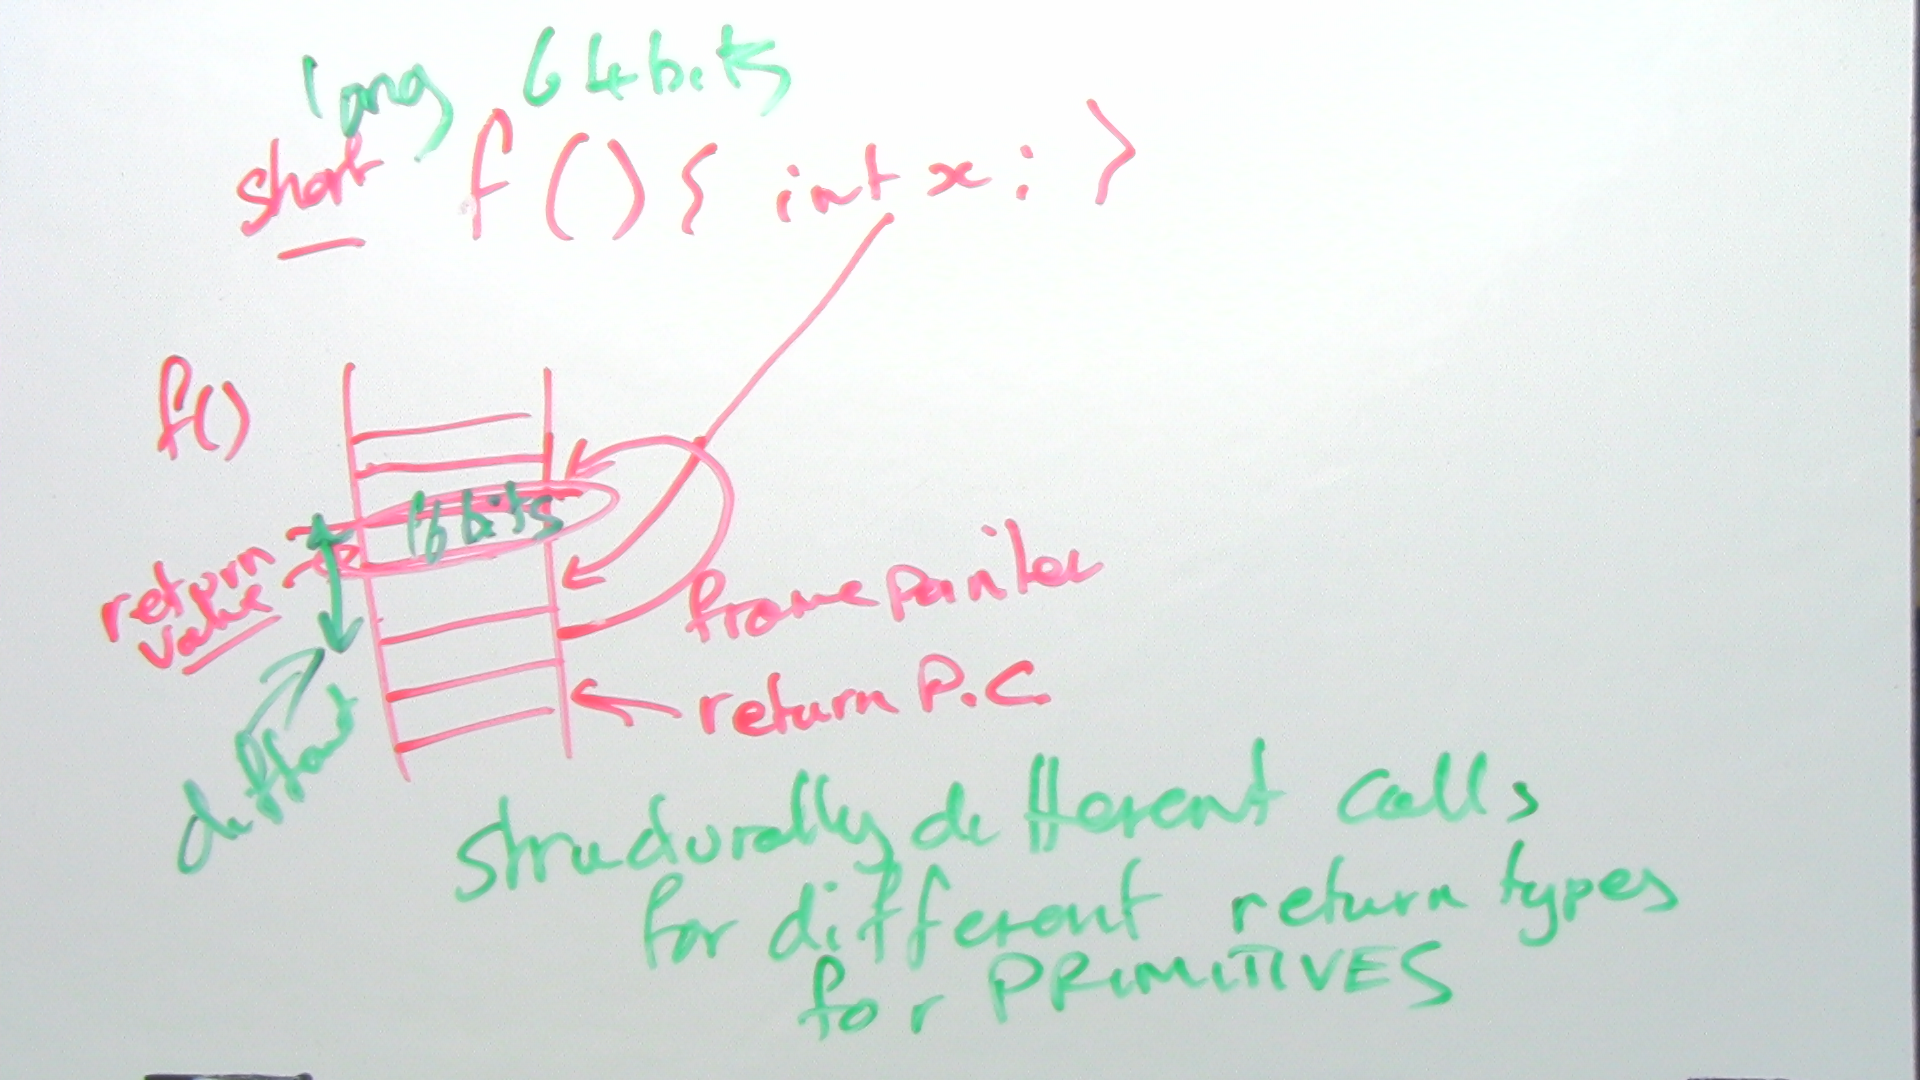 long 64bits
short f(){ int x; }
f()
16 bits
return
value
frame pointer
return P.C.
different
structurally different calls
for different return types
for PRIMITIVES